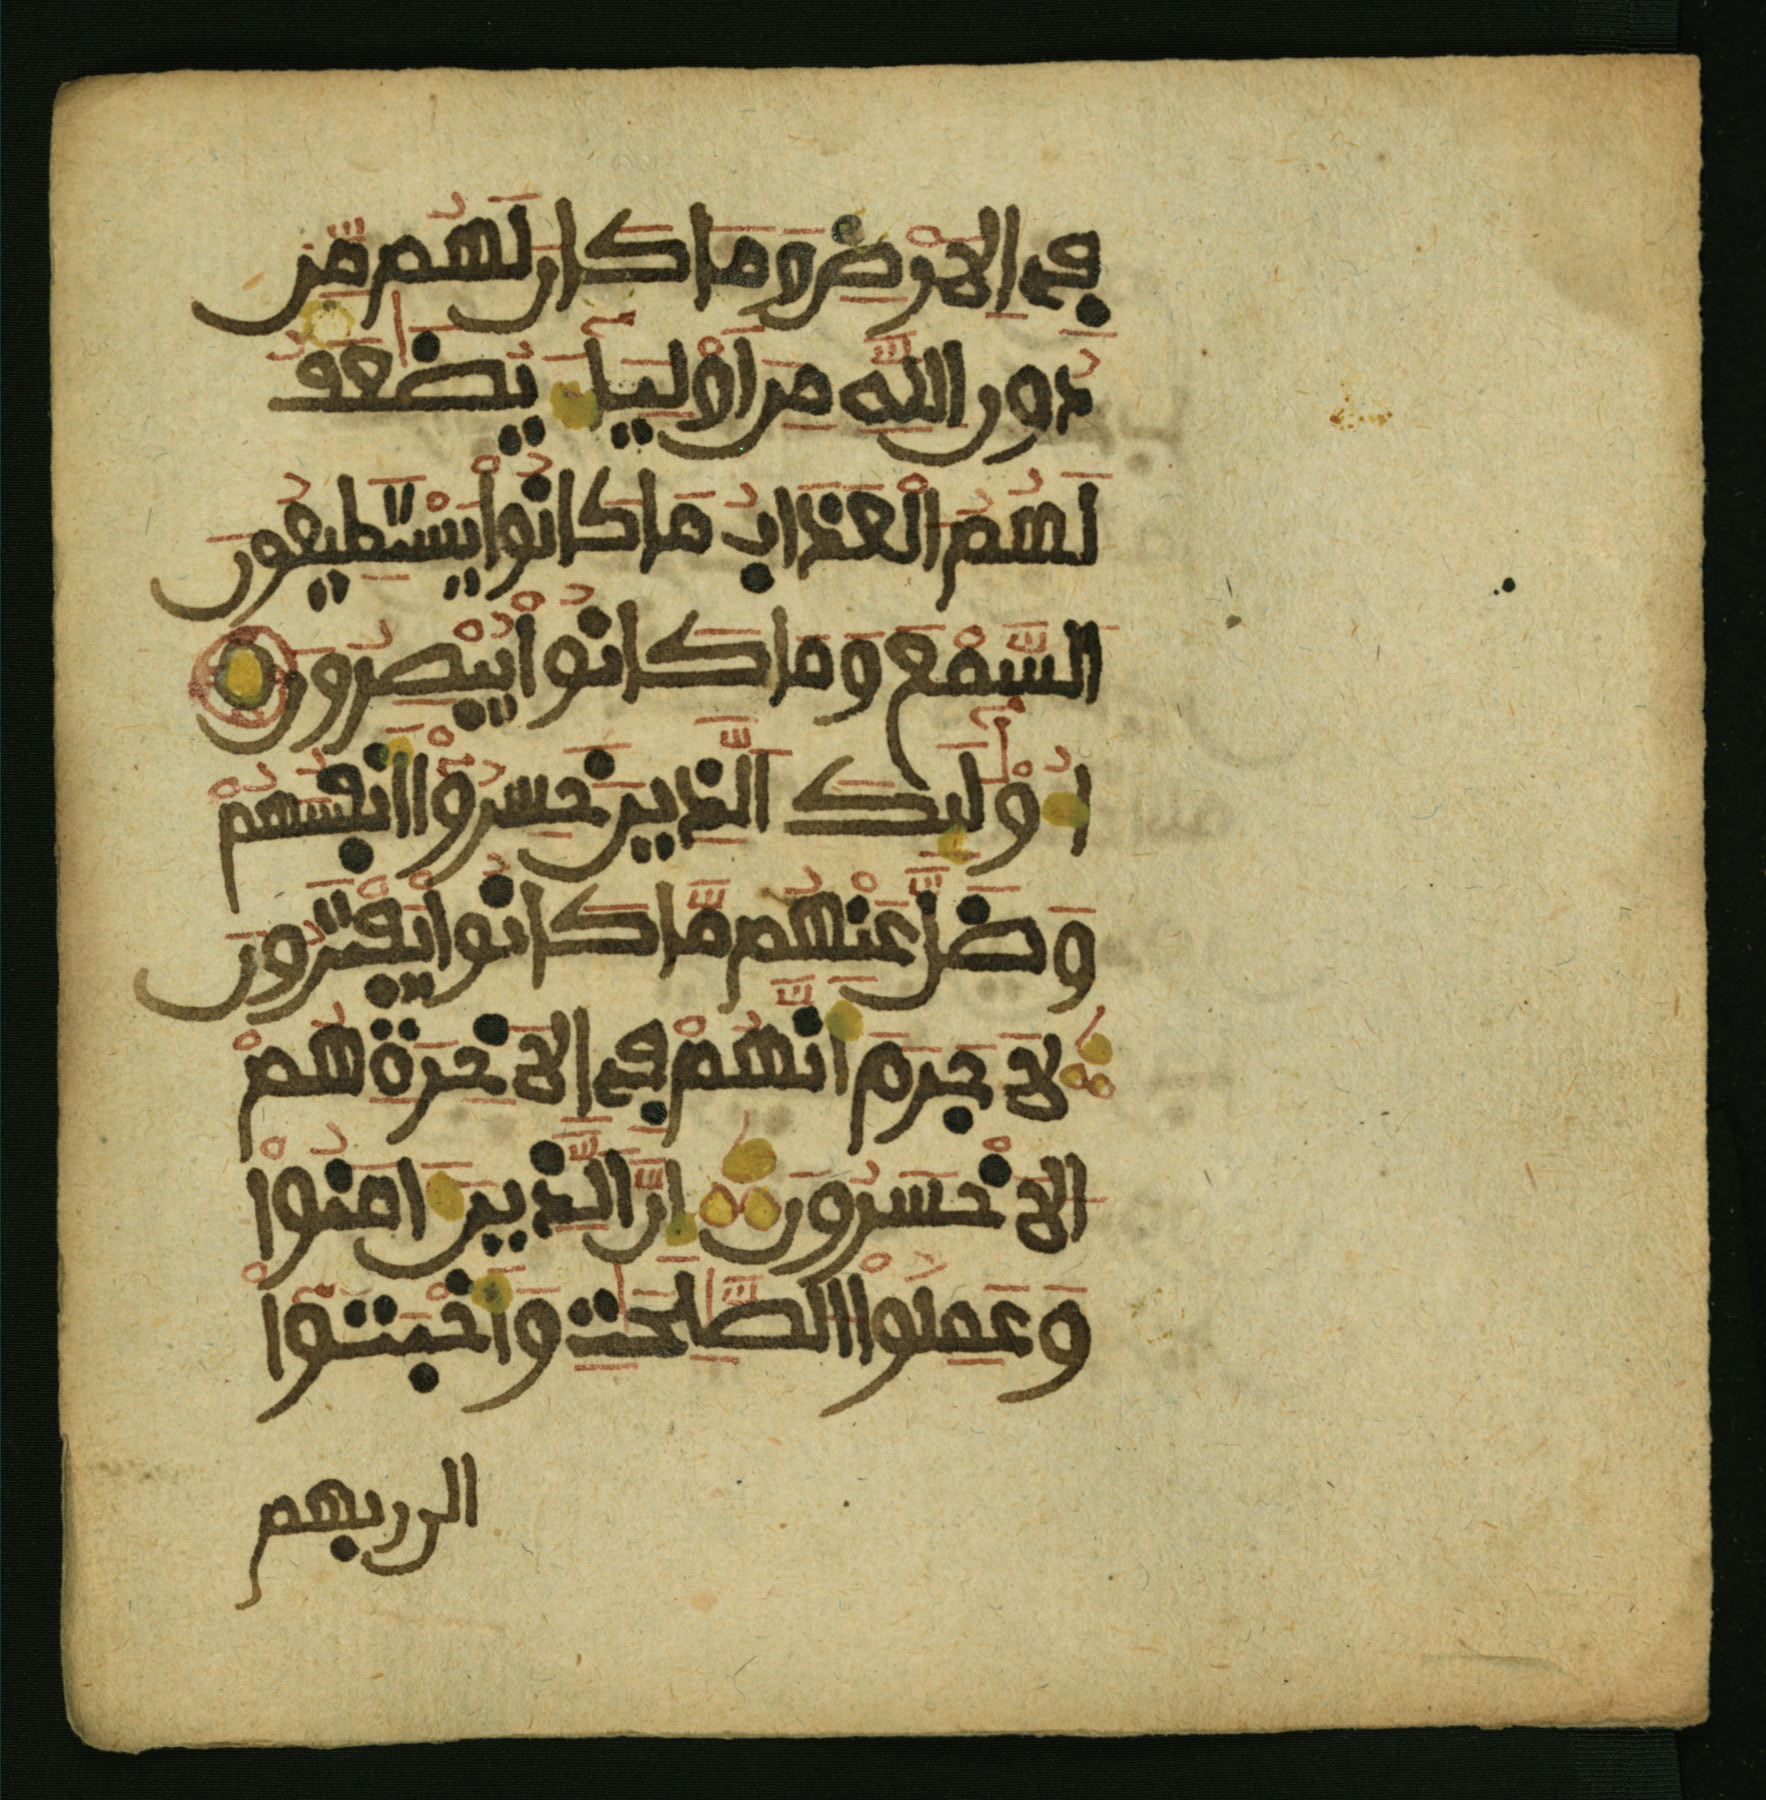 فِے اِ۬لَارْضِ وَمَا كَانَ لَهُم مِّن
دُونِ اِ۬للَّهِ مِنَ اَوْلِيَآءَ يُضَٰعَفُ
لَهُمُ اُ۬لْعَذَابُ مَا كَانُواْ يَسْتَطِيعُونَ
اَ۬لسَّمْعَ وَمَا كَانُواْ يُبْصِرُونَ
أُوْلَٰٓئِكَ اَ۬لذِينَ خَسِرُوٓاْ أَنفُسَهُمْ
وَضَلَّ عَنْهُم مَّا كَانُواْ يَفْتَرُونَ
لَا جَرَمَ أَنَّهُمْ فِے اِ۬لَاخِرَةِ هُمُ
اُ۬لَاخْسَرُونَ إِنَّ اَ۬لذِينَ ءَامَنُواْ
وَعَمِلُواْ اُ۬لصَّٰلِحَٰتِ وَأَخْبَتُوٓاْ
الى ربهم